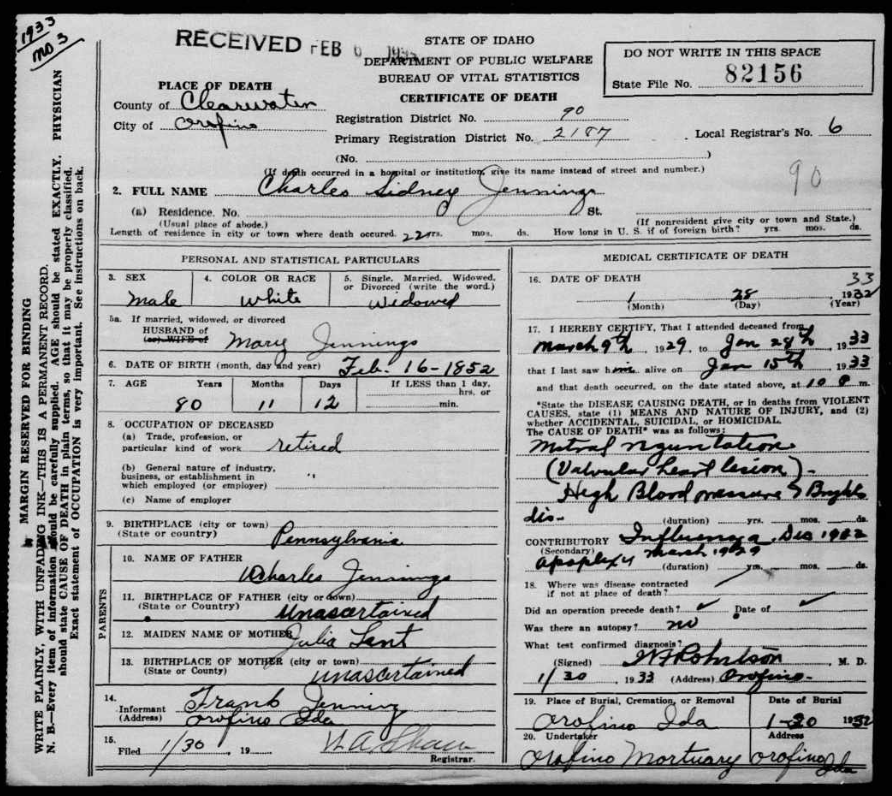 1933
No 3
RECEIVED FEB 6 1933
STATE OF IDAHO
DEPARTMENT OF PUBLIC WELFARE
BUREAU OF VITAL STATISTICS
CERTIFICATE OF DEATH
DO NOT WRITE IN THIS SPACE
State File No. 82156
PLACE OF DEATH
County of Clearwater
City of Orofino
Registration District No. 90
Primary Registration District No. 2187
Local Registrar's No. 6
(No. )
(If death occurred in a hospital or institution, give its name instead of street and number.)
90
2. FULL NAME Charles Sidney Jennings
(a) Residence. No. St.
(Usual place of abode.) (If nonresident give city or town and State.)
Length of residence in city or town where death occured. 22 yrs. mos. ds. How long in U. S. if of foreign birth? yrs. mos. ds.
PERSONAL AND STATISTICAL PARTICULARS
3. SEX Male
4. COLOR OR RACE White
5. Single, Married, Widowed, or Divorced (write the word.) Widowed
5a. If married, widowed, or divorced
HUSBAND of
(or) WIFE of Mary Jennings
6. DATE OF BIRTH (month, day and year) Feb. 16-1852
7. AGE Years Months Days If LESS than 1 day, hrs. or min.
80 11 12
8. OCCUPATION OF DECEASED
(a) Trade, profession, or particular kind of work retired
(b) General nature of industry, business, or establishment in which employed (or employer) "
(c) Name of employer
9. BIRTHPLACE (city or town)
(State or country) Pennsylvania
PARENTS
10. NAME OF FATHER
Charles Jennings
11. BIRTHPLACE OF FATHER (city or town)
(State or Country) Unascertained
12. MAIDEN NAME OF MOTHER Julia Lant
13. BIRTHPLACE OF MOTHER (city or town)
(State or Country) Unascertained
14.
Informant Frank Jennings
(Address) Orofino Ida
15.
Filed 1/30, 19
Registrar.
MEDICAL CERTIFICATE OF DEATH
16. DATE OF DEATH 33
1 28 1932
(Month) (Day) (Year)
17. I HEREBY CERTIFY, That I attended deceased from
March 9th, 1929, to Jan 28th, 1933
that I last saw him alive on Jan 15th, 1933
and that death occurred, on the date stated above, at 10 P m.
*State the DISEASE CAUSING DEATH, or in deaths from VIOLENT CAUSES, state (1) MEANS AND NATURE OF INJURY, and (2) whether ACCIDENTAL, SUICIDAL, or HOMICIDAL.
The CAUSE OF DEATH* was as follows:
Mitral regurgitation
(Valvular heart lesion) -
High Blood pressure & Brights
dis- (duration) yrs. mos. ds.
CONTRIBUTORY Influenza Dec 1932
(Secondary) apoplexy March 1929
(duration) yrs. mos. ds.
18. Where was disease contracted
if not at place of death?
Did an operation precede death? ✓ Date of ✓
Was there an autopsy? no
What test confirmed diagnosis?
(Signed) Robertson M. D.
1/30 1933 (Address) Orofino.
19. Place of Burial, Cremation, or Removal Date of Burial
Orofino Ida 1-30 1932
20. Undertaker Address
Orofino Mortuary Orofino Ida
MARGIN RESERVED FOR BINDING
WRITE PLAINLY, WITH UNFADING INK—THIS IS A PERMANENT RECORD.
N. B.—Every item of information should be carefully supplied. AGE should be stated EXACTLY. PHYSICIAN
should state CAUSE OF DEATH in plain terms, so that it may be properly classified.
Exact statement of OCCUPATION is very important. See instructions on back.